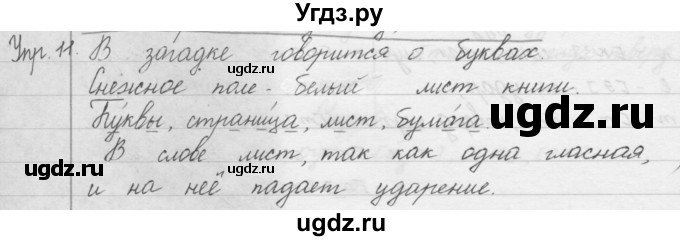 Угдз.ру
Упр. 11. В загадке говорится о буквах.
Снежное поле - белый лист книги.
Буквы, страница, лист, бумага.
В слове лист, так как одна гласная,
и на неё падает ударение.
ugdz.ru
ugdz.ru
ugdz.ru
ugdz.ru
ugdz.ru